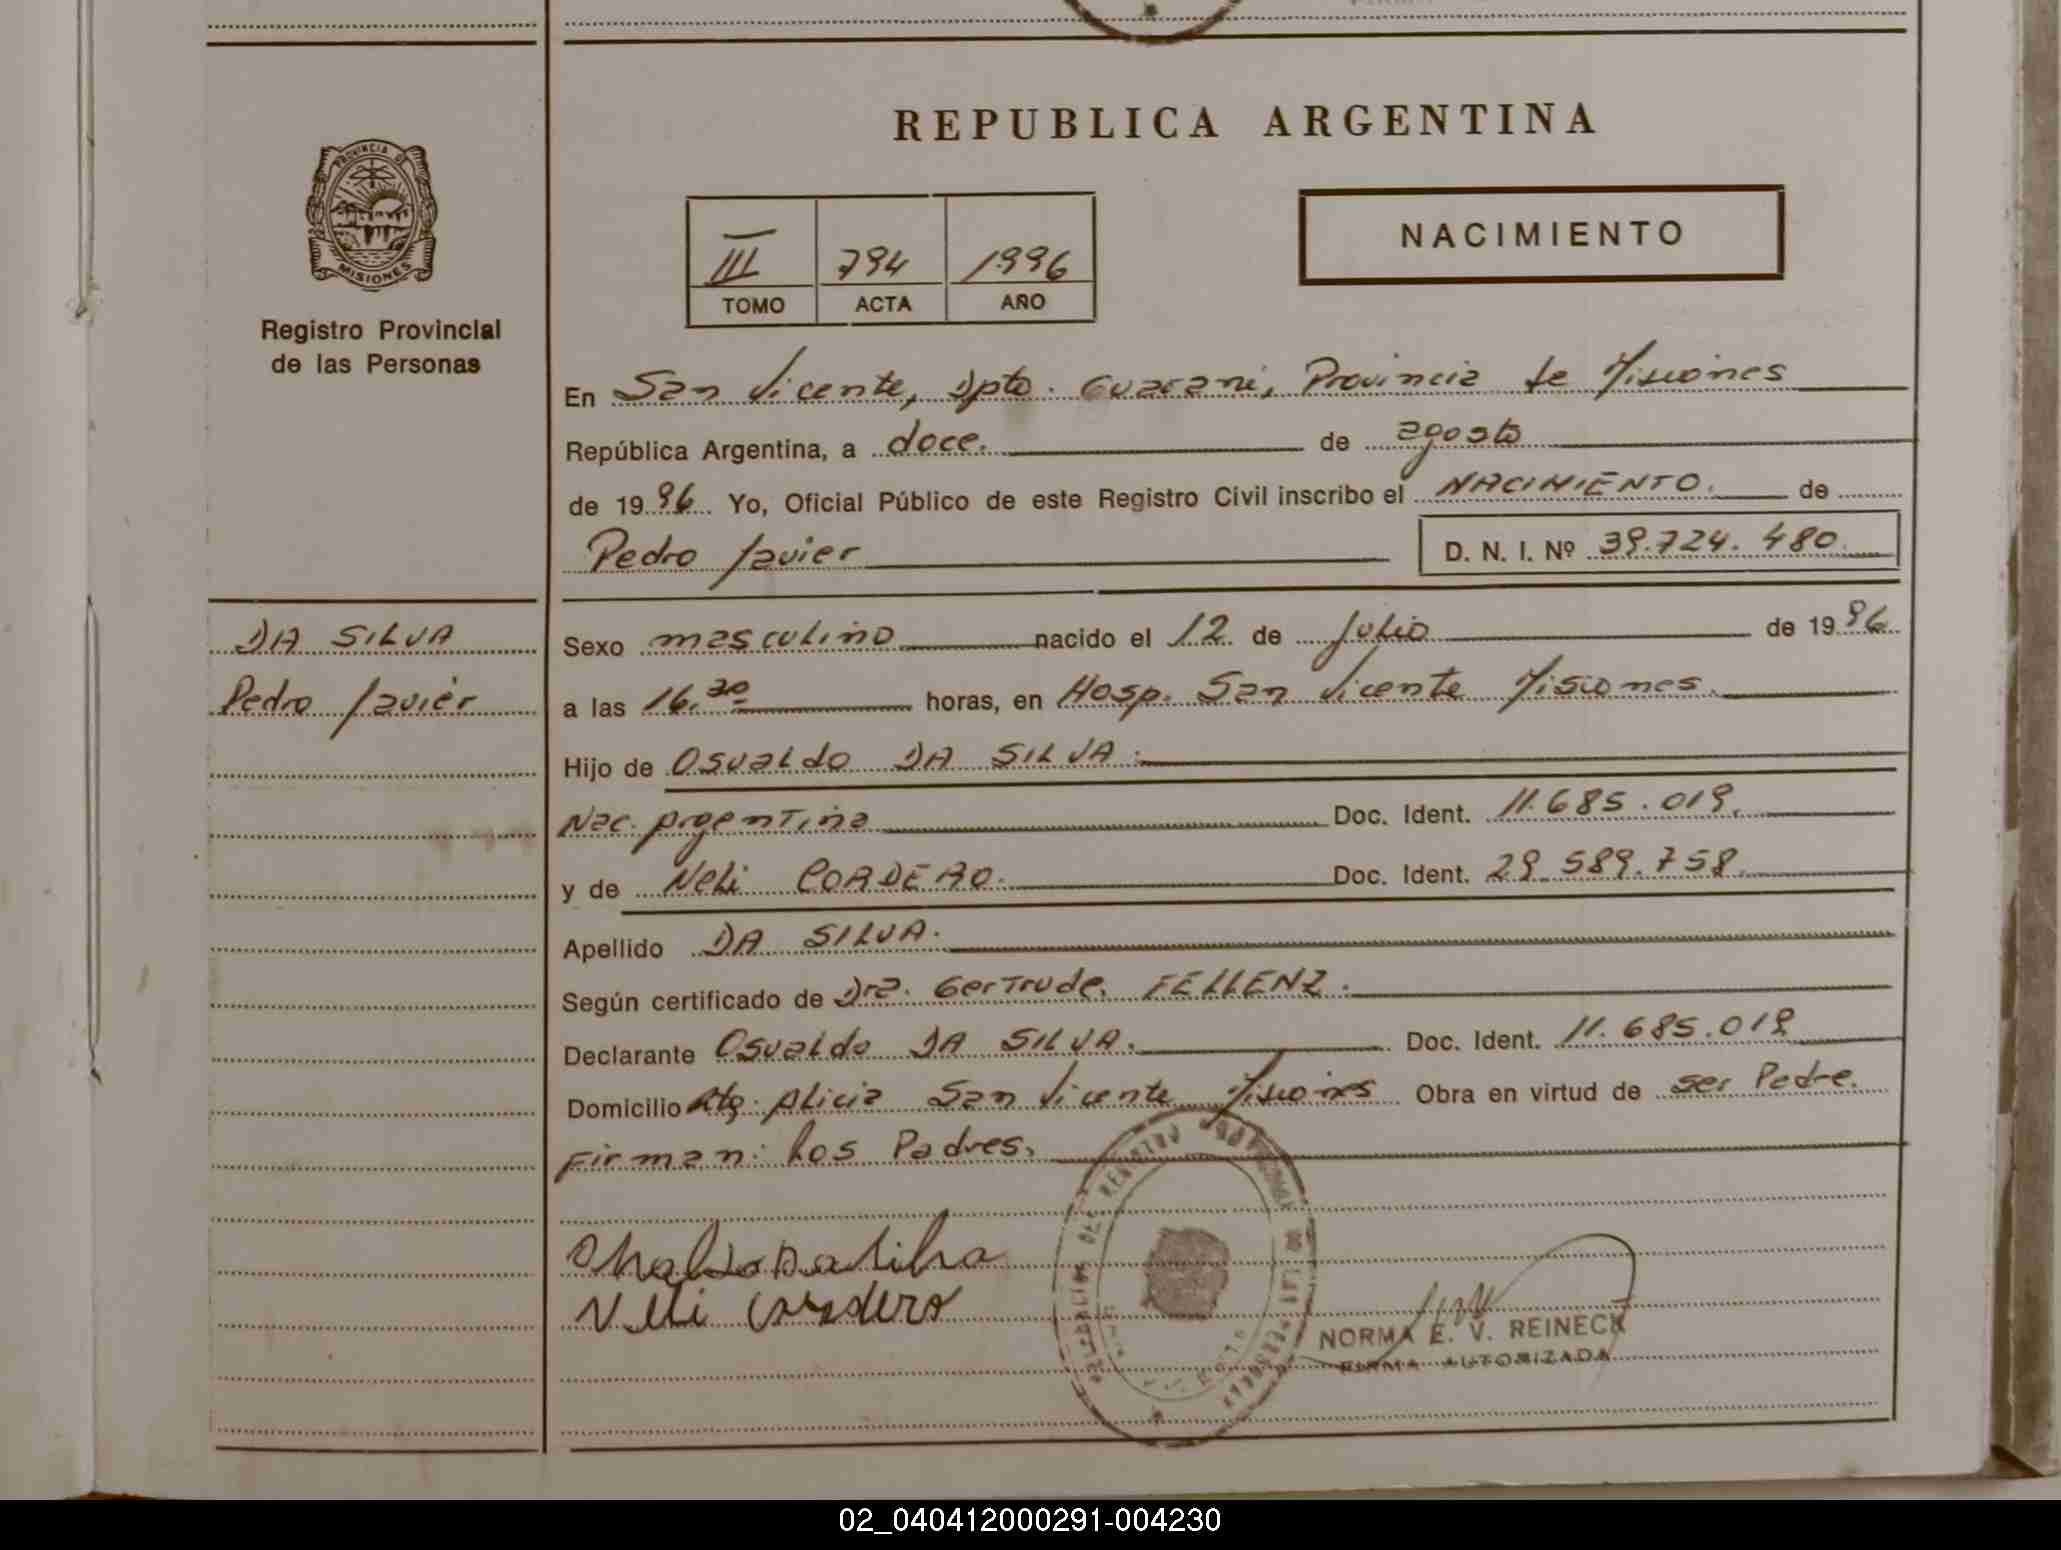 REPUBLICA ARGENTINA
PROVINCIA DE
MISIONES
Registro Provincial
de las Personas
III 794 1996
TOMO ACTA AÑO
NACIMIENTO
En San Vicente, Dpto. Guarani, Provincia de Misiones
República Argentina, a doce. de agosto
de 1996 Yo, Oficial Público de este Registro Civil inscribo el NACIMIENTO. de
Pedro Javier D. N. I. Nº 39.724.480
DA SILVA
Pedro Javier
Sexo masculino nacido el 12 de Julio de 1996
a las 16.30 horas, en Hosp. San Vicente Misiones.
Hijo de Osvaldo DA SILVA.
Nac. Argentina Doc. Ident. 11.685.019.
y de Neli CORDERO. Doc. Ident. 29.589.758.
Apellido DA SILVA.
Según certificado de Dra. Gertrude. FELLENZ.
Declarante Osvaldo DA SILVA. Doc. Ident. 11.685.019
Domicilio Alicia San Vicente Misiones Obra en virtud de ser Padre.
Firman: Los Padres.
Neli Cordero
NORMA E. V. REINECK
FIRMA AUTORIZADA
02_040412000291-004230